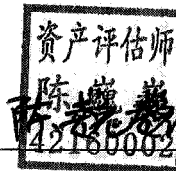 资产评估师
陈巍巍
42160002